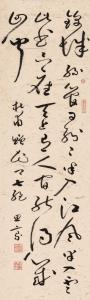 錦城絲管日紛紛半入江風半入雲
此曲只應天上有人間能得幾
回聞
杜甫贈花卿七絕